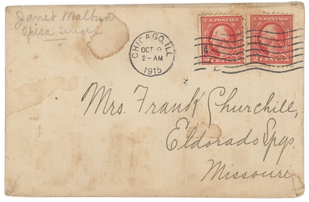 Janet Malbon
Opera Singer
CHICAGO, ILL.
OCT 9
2-AM
1915
U.S. POSTAGE
U.S. POSTAGE
2 CENTS 2
Mrs. Frank Churchill,
Eldorado Spgs.
Missouri